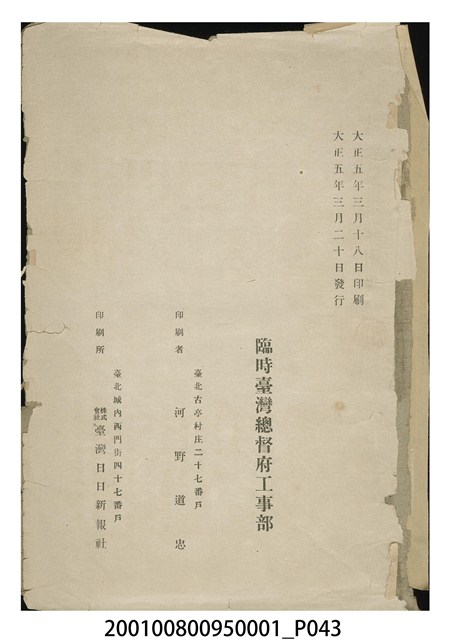 大正五年三月十八日印刷
大正五年三月二十日發行
臨時臺灣總督府工事部
臺北古亭村庄二十七番戶
印刷者 河野道忠
臺北城內西門街四十七番戶
印刷所 株式會社 臺灣日日新報社
200100800950001_P043